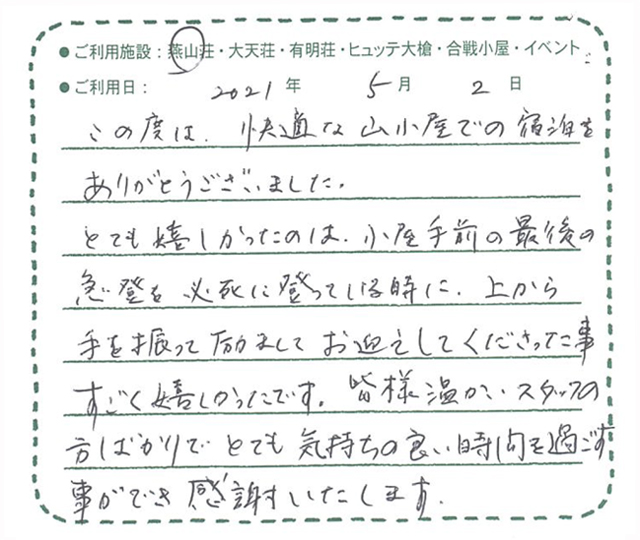 ●ご利用施設：燕山荘・大天荘・有明荘・ヒュッテ大槍・合戦小屋・イベント
●ご利用日： 2021 年 5 月 2 日
この度は、快適な山小屋での宿泊を
ありがとうございました。
とても嬉しかったのは、小屋手前の最後の
急登を必死に登っている時に、上から
手を振って励ましてお迎えしてくださった事
すごく嬉しかったです。皆様温かいスタッフの
方ばかりでとても気持ちの良い時間を過ごす
事ができ感謝いたします。